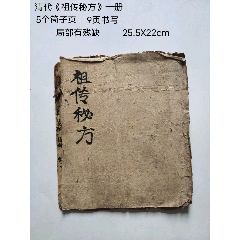 清代《祖传秘方》一册
5个筒子页 9页书写
局部有残缺 25.5X22cm
祖传秘方